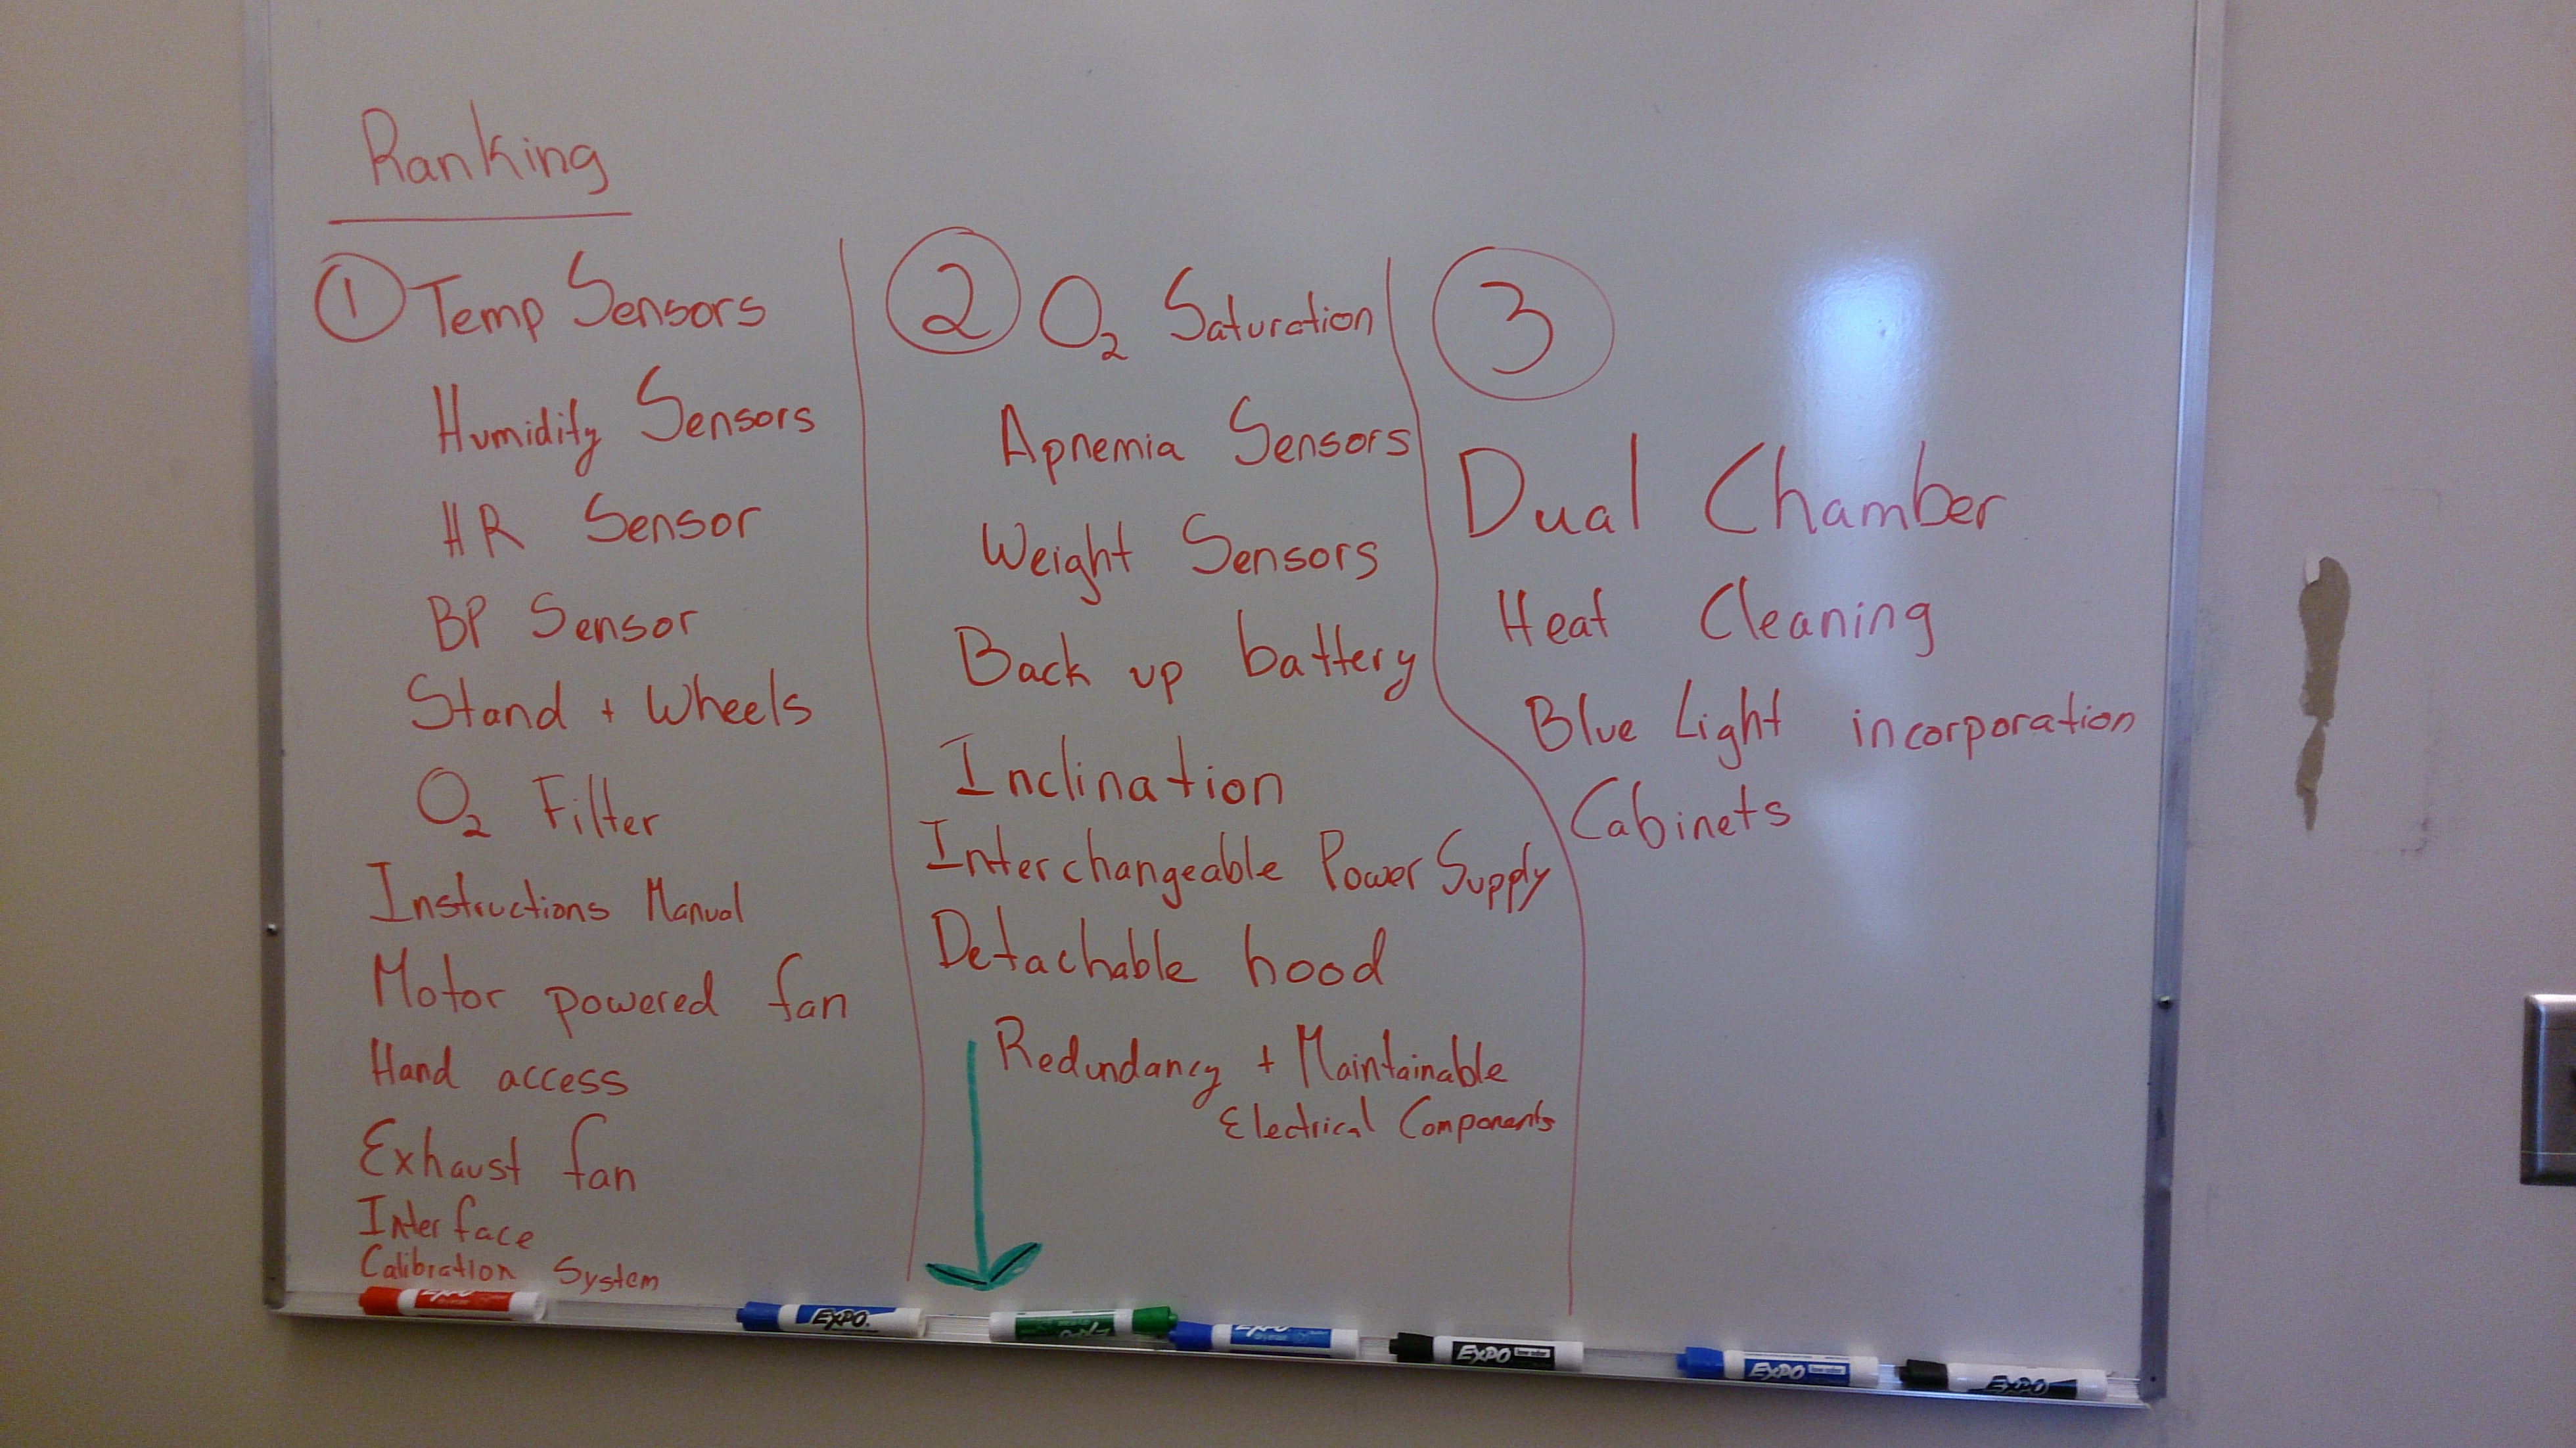 Ranking
1 Temp Sensors
Humidity Sensors
HR Sensor
BP Sensor
Stand + Wheels
O2 Filter
Instructions Manual
Motor powered fan
Hand access
Exhaust fan
Interface
Calibration System
2 O2 Saturation
Apnemia Sensors
Weight Sensors
Back up battery
Inclination
Interchangeable Power Supply
Detachable hood
Redundancy + Maintainable
Electrical Components
3
Dual Chamber
Heat Cleaning
Blue Light incorporation
Cabinets
EXPO
EXPO
EXPO
EXPO
EXPO
EXPO
EXPO